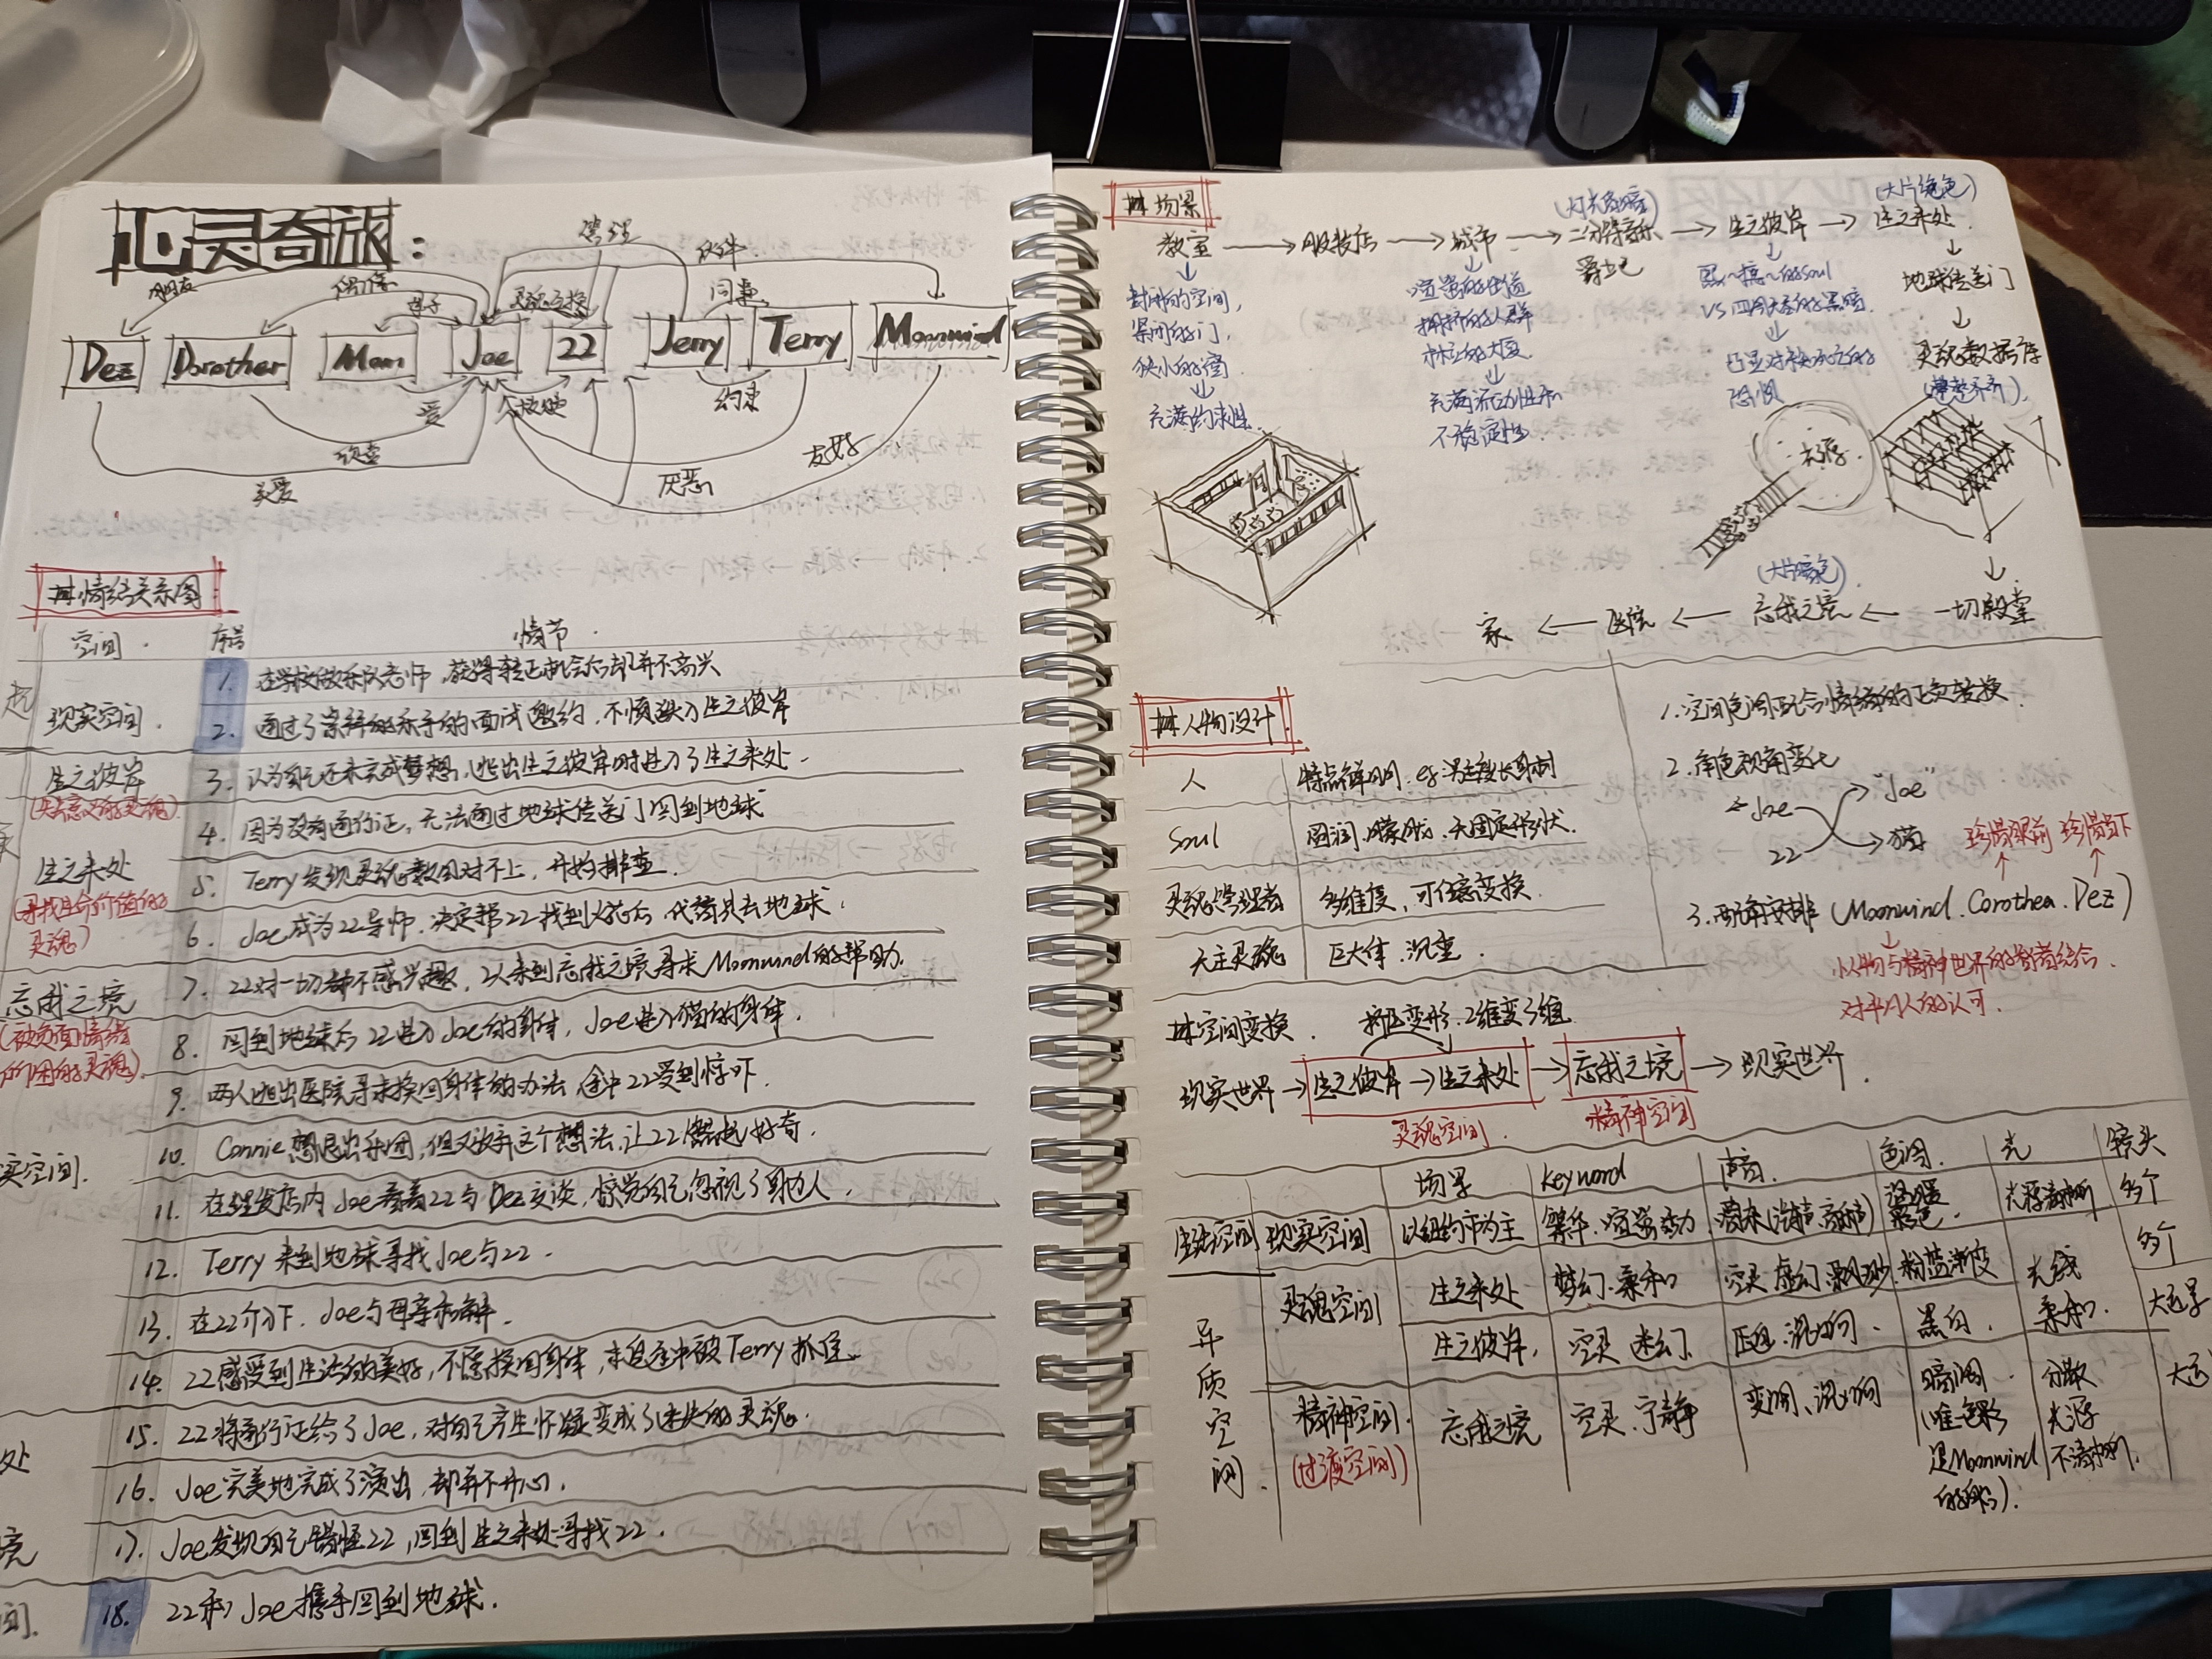 心灵奇旅：
管理
伙伴
朋友
母子
灵魂互换
同事
Dez
Dorother
Mom
Joe
22
Jerry
Terry
Moonwind
爱
救赎
约束
友好
关爱
厌恶
#情结关系图
空间. 序号 情节.
现实空间.
1. 在学校做乐队老师，获得转正机会后却并不高兴
2. 通过了崇拜的乐手的面试邀约，不慎跌入生之彼岸
生之彼岸
3. 认为自己还未完成梦想，逃出生之彼岸时进入了生之来处.
4. 因为没有通行证，无法通过地球传送门回到地球
生之来处
(寻找生命价值的灵魂)
5. Terry发现灵魂数目对不上，开始排查.
6. Joe成为22导师，决定帮22找到火花后，代替其去地球.
忘我之境
(被负面情绪所困的灵魂)
7. 22对一切都不感兴趣，以来到忘我之境寻求Moonwind的帮助.
8. 回到地球后22进入Joe的身体，Joe进入猫的身体.
9. 两人逃出医院寻求换回身体的办法，途中22受到惊吓.
10. Connie想退出乐团，但又放弃这个想法，让22燃起好奇.
11. 在理发店内Joe看着22与Dez交谈，惊觉自己忽视了身边人.
12. Terry来到地球寻找Joe与22.
13. 在22介入下，Joe与母亲和解.
14. 22感受到生活的美好，不愿换回身体，来自途中被Terry抓住.
15. 22将通行证给了Joe，对自己产生怀疑变成了迷失的灵魂.
16. Joe完美地完成了演出，却并不开心.
17. Joe发现自己错怪22，回到生之来处寻找22.
18. 22和Joe携手回到地球.
#场景
(灯光昏暗)
(大片纯色)
教室 → 服装店 → 城市 → 二分音符音乐爵士吧 → 生之彼岸 → 生之来处
封闭的空间，
紧闭的门，
狭小的窗
充满约束性
喧嚣的街道
拥挤的人群
林立的大厦
充满流动性和
不稳定性.
VS 四周大量的黑暗
凸显对未知的
恐惧
地球传送门
灵魂数据库
(整整齐齐)
光源
(大片暗色)
家 ← 医院 ← 忘我之境 ← 一切殿堂
#人物设计
人 特点鲜明. eg:男主瘦长身材
Soul 圆润.朦胧.无固定形状.
灵魂管理者 多维度，可任意变换.
失主灵魂 巨大体.沉重.
1. 空间色调配合情绪的正负转换.
2. 角色视角变化
Joe "Joe"
22 猫
珍惜眼前 珍惜当下
3. 配角安排(Moonwind. Corothea. Dez)
小人物与精神世界的智者结合.
对平凡人的认可.
#空间变换. 挤压变形.2维变3维
现实世界→生之彼岸→生之来处→忘我之境→现实世界.
灵魂空间. 精神空间
场景 Keyword 声音. 色调. 光 镜头
生活空间 现实空间 以纽约市为主 繁华.喧嚣.动力 光源清晰 多个
异质空间. 灵魂空间 生之来处 梦幻.柔和 空灵.虚幻.飘渺 粉蓝渐变 光线柔和. 多个
生之彼岸. 空灵.迷幻. 黑白. 大远景
精神空间.
(过渡空间) 忘我之境 空灵.宁静 变调、混响 暗调.
(唯一色彩是Moonwind的船). 分散光源不清晰. 大远